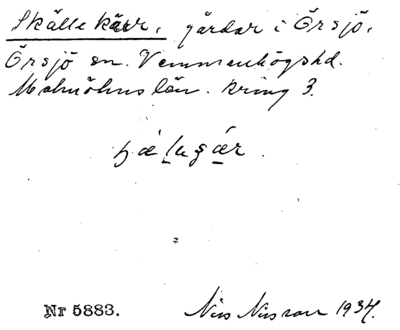 Skälle kärr, gårdar i Örsjö,
Örsjö sn. Vemmenhögshd.
Malmöhus län. kring 3.
Nr 5883. Nils Nilsson 1934.